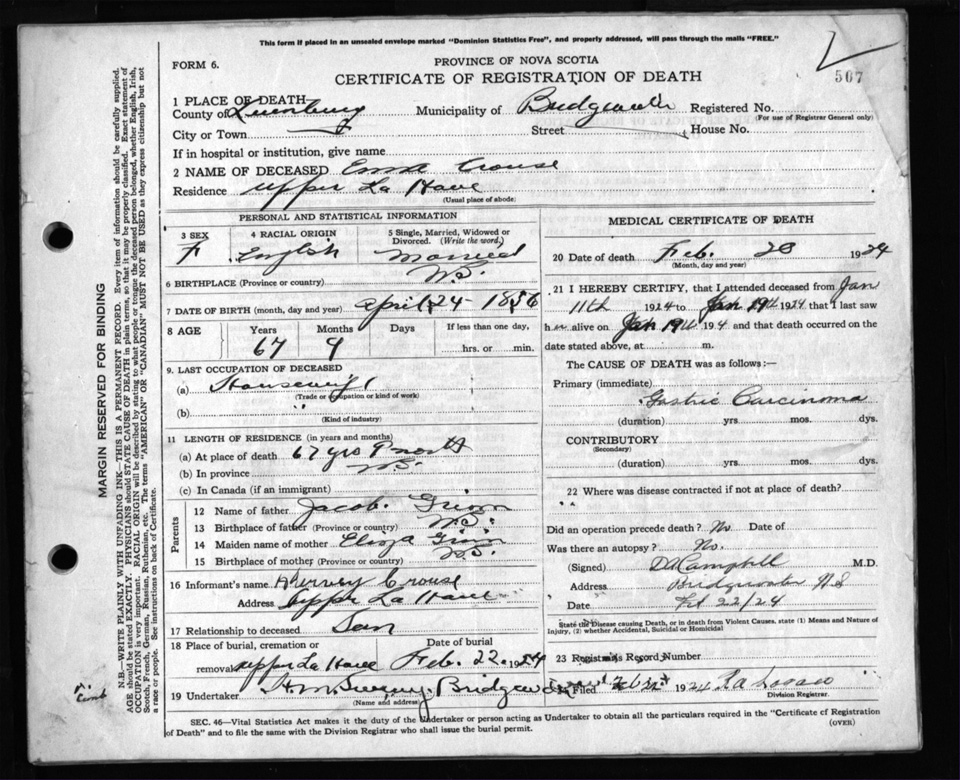 This form if placed in an unsealed envelope marked "Dominion Statistics Free", and properly addressed, will pass through the mails "FREE."
FORM 6.
PROVINCE OF NOVA SCOTIA
507
CERTIFICATE OF REGISTRATION OF DEATH
1 PLACE OF DEATH
County of Lunenburg Municipality of Bridgewater Registered No.
(For use of Registrar General only)
City or Town Street House No.
If in hospital or institution, give name
2 NAME OF DECEASED Crouse
Residence Upper La Have
(Usual place of abode)
PERSONAL AND STATISTICAL INFORMATION
3 SEX 4 RACIAL ORIGIN 5 Single, Married, Widowed or Divorced. (Write the word.)
F English Married
6 BIRTHPLACE (Province or country) N.S.
7 DATE OF BIRTH (month, day and year) April 24 - 1856
8 AGE Years Months Days If less than one day,
67 9 hrs. or min.
9. LAST OCCUPATION OF DECEASED
(a) Housewife
(Trade or occupation or kind of work)
(b) "
(Kind of industry)
11 LENGTH OF RESIDENCE (in years and months)
(a) At place of death 67 yrs 9
(b) In province N.S.
(c) In Canada (if an immigrant)
Parents
12 Name of father Jacob
13 Birthplace of father (Province or country) N.S.
14 Maiden name of mother Eliza
15 Birthplace of mother (Province or country) N.S.
16 Informant's name Hervey Crouse
Address Upper La Have
17 Relationship to deceased Son
18 Place of burial, cremation or removal Date of burial
Upper La Have Feb. 22. 1924
19 Undertaker Bridgewater
(Name and address)
MEDICAL CERTIFICATE OF DEATH
20 Date of death Feb. 20 1924
(Month, day and year)
21 I HEREBY CERTIFY, that I attended deceased from Jan
11th 1924 to Jan 19th 1924 that I last saw
h er alive on Jan 19th 1924 and that death occurred on
date stated above, at m.
The CAUSE OF DEATH was as follows:—
Primary (immediate)
Gastric Carcinoma
(duration) yrs. mos. dys.
CONTRIBUTORY
(Secondary)
(duration) yrs. mos. dys.
22 Where was disease contracted if not at place of death?
Did an operation precede death? No Date of
Was there an autopsy? No.
(Signed) D A Campbell M.D.
Address Bridgewater N.S
Date Feb 22/24
State the Disease causing Death, or in death from Violent Causes, state (1) Means and Nature of Injury, (2) whether Accidental, Suicidal or Homicidal
23 Registrars Record Number
Filed 1924
Division Registrar.
SEC. 46—Vital Statistics Act makes it the duty of the Undertaker or person acting as Undertaker to obtain all the particulars required in the "Certificate of Registration of Death" and to file the same with the Division Registrar who shall issue the burial permit.
(OVER)
MARGIN RESERVED FOR BINDING
N.B.—WRITE PLAINLY WITH UNFADING INK—THIS IS A PERMANENT RECORD. Every item of information should be carefully supplied.
AGE should be stated EXACTLY. PHYSICIANS should STATE CAUSE OF DEATH in plain terms, so that it may be properly classified. Exact statement of
OCCUPATION is very important. RACIAL ORIGIN will be described by stating to what people or tongue the deceased person belonged, whether English, Irish,
Scotch, French, German, Russian, Ruthenian, etc. The terms "AMERICAN" OR "CANADIAN" MUST NOT BE USED as they express citizenship but not
a race or people. See instructions on back of Certificate.